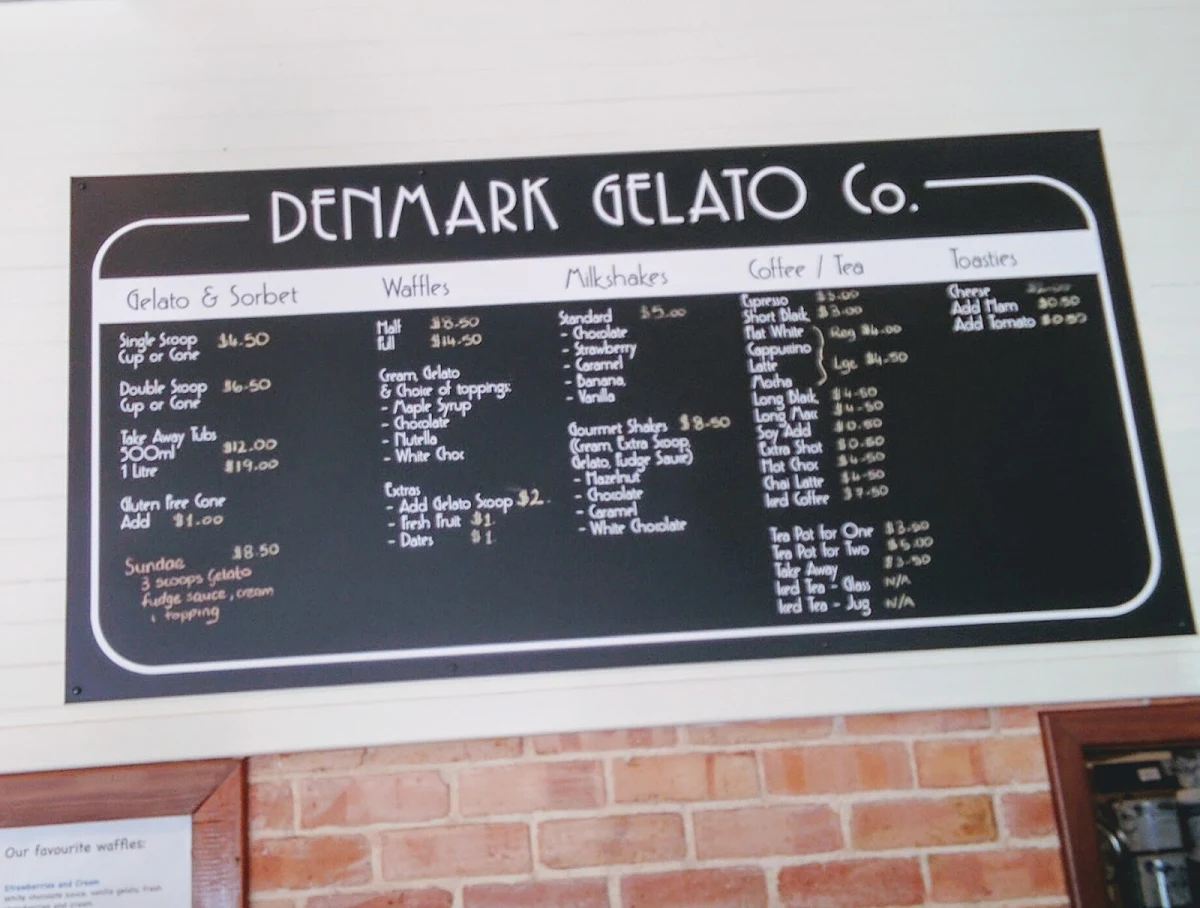 DENMARK GELATO Co.
Gelato & Sorbet
Single Scoop $4.50
Cup or Cone
Double Scoop $6.50
Cup or Cone
Take Away Tubs
500ml $12.00
1 Litre $19.00
Gluten Free Cone
Add $1.00
Sundae $8.50
3 scoops Gelato
fudge sauce, cream
topping
Waffles
Half $8.50
Full $14.50
Cream, Gelato
& Choice of toppings:
- Maple Syrup
- Chocolate
- Nutella
- White Choc
Extras
- Add Gelato Scoop $2.
- Fresh Fruit $1
- Dates $1
Milkshakes
Standard $5.00
- Chocolate
- Strawberry
- Caramel
- Banana
- Vanilla
Gourmet Shakes $8.50
(Cream, Extra Scoop,
Gelato, Fudge Sauce)
- Hazelnut
- Chocolate
- Caramel
- White Chocolate
Coffee / Tea
Espresso $3.00
Short Black $3.00
Flat White Reg $4.00
Cappuccino
Latte Lge $4.50
Mocha
Long Black $4.50
Long Macc $4.50
Soy Add $0.50
Extra Shot $0.50
Hot Choc $4.50
Chai Latte $4.50
Iced Coffee $7.50
Tea Pot for One $3.50
Tea Pot for Two $5.00
Take Away $3.50
Iced Tea - Glass N/A
Iced Tea - Jug N/A
Toasties
Cheese
Add Ham $0.50
Add Tomato $0.50
Our favourite waffles:
Strawberries and Cream
white chocolate sauce, vanilla gelato, fresh
strawberries and cream